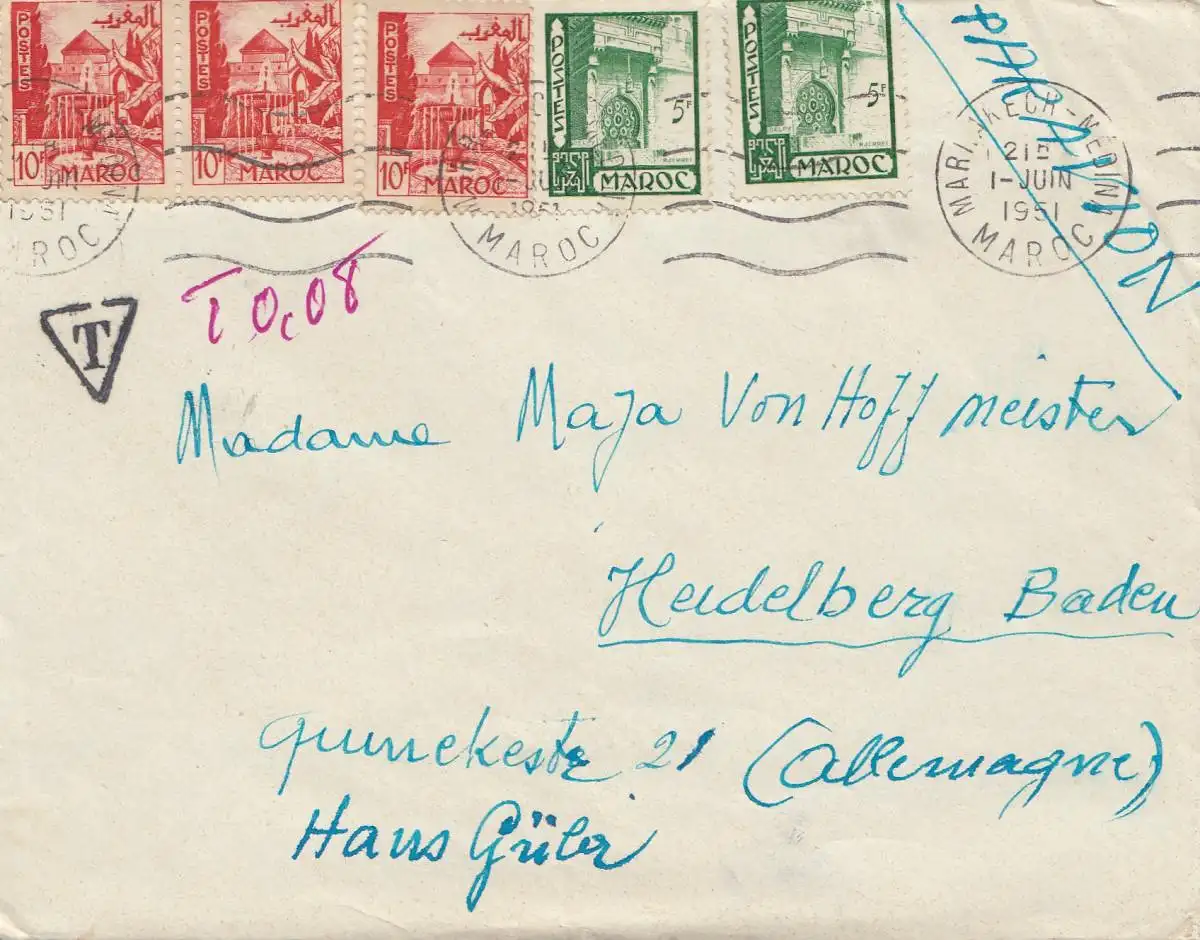 POSTES المغرب 10F MAROC
POSTES المغرب 10F MAROC
POSTES المغرب 10F MAROC
POSTES 5F MAROC
POSTES 5F MAROC
PAR AVION
1-JUIN
1951
MAROC
1-JUIN
1951
MAROC
MARRAKECH-MEDINA
21H
1-JUIN
1951
MAROC
T
T 0,08
Madame Maja Von Hoffmeister
Heidelberg Baden
21 (Allemagne)
Hans